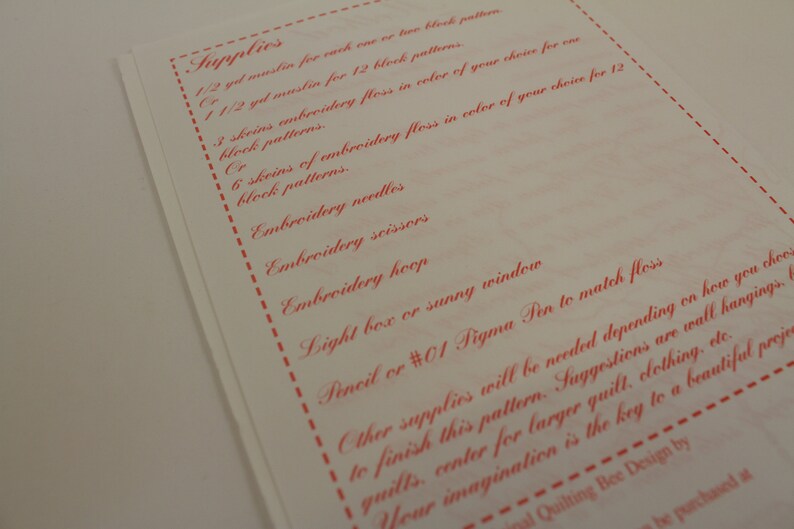 Supplies
1/2 yd muslin for each one or two block pattern.
Or
1 1/2 yd muslin for 12 block patterns.
3 skeins embroidery floss in color of your choice for one
block patterns.
Or
6 skeins of embroidery floss in color of your choice for 12
block patterns.
Embroidery needles
Embroidery scissors
Embroidery hoop
Light box or sunny window
Pencil or #01 Pigma Pen to match floss
Other supplies will be needed depending on how you choos
to finish this pattern. Suggestions are wall hangings,
quilts, center for larger quilt, clothing, etc.
Your imagination is the key to a beautiful projec
inal Quilting Bee Design by
be purchased at